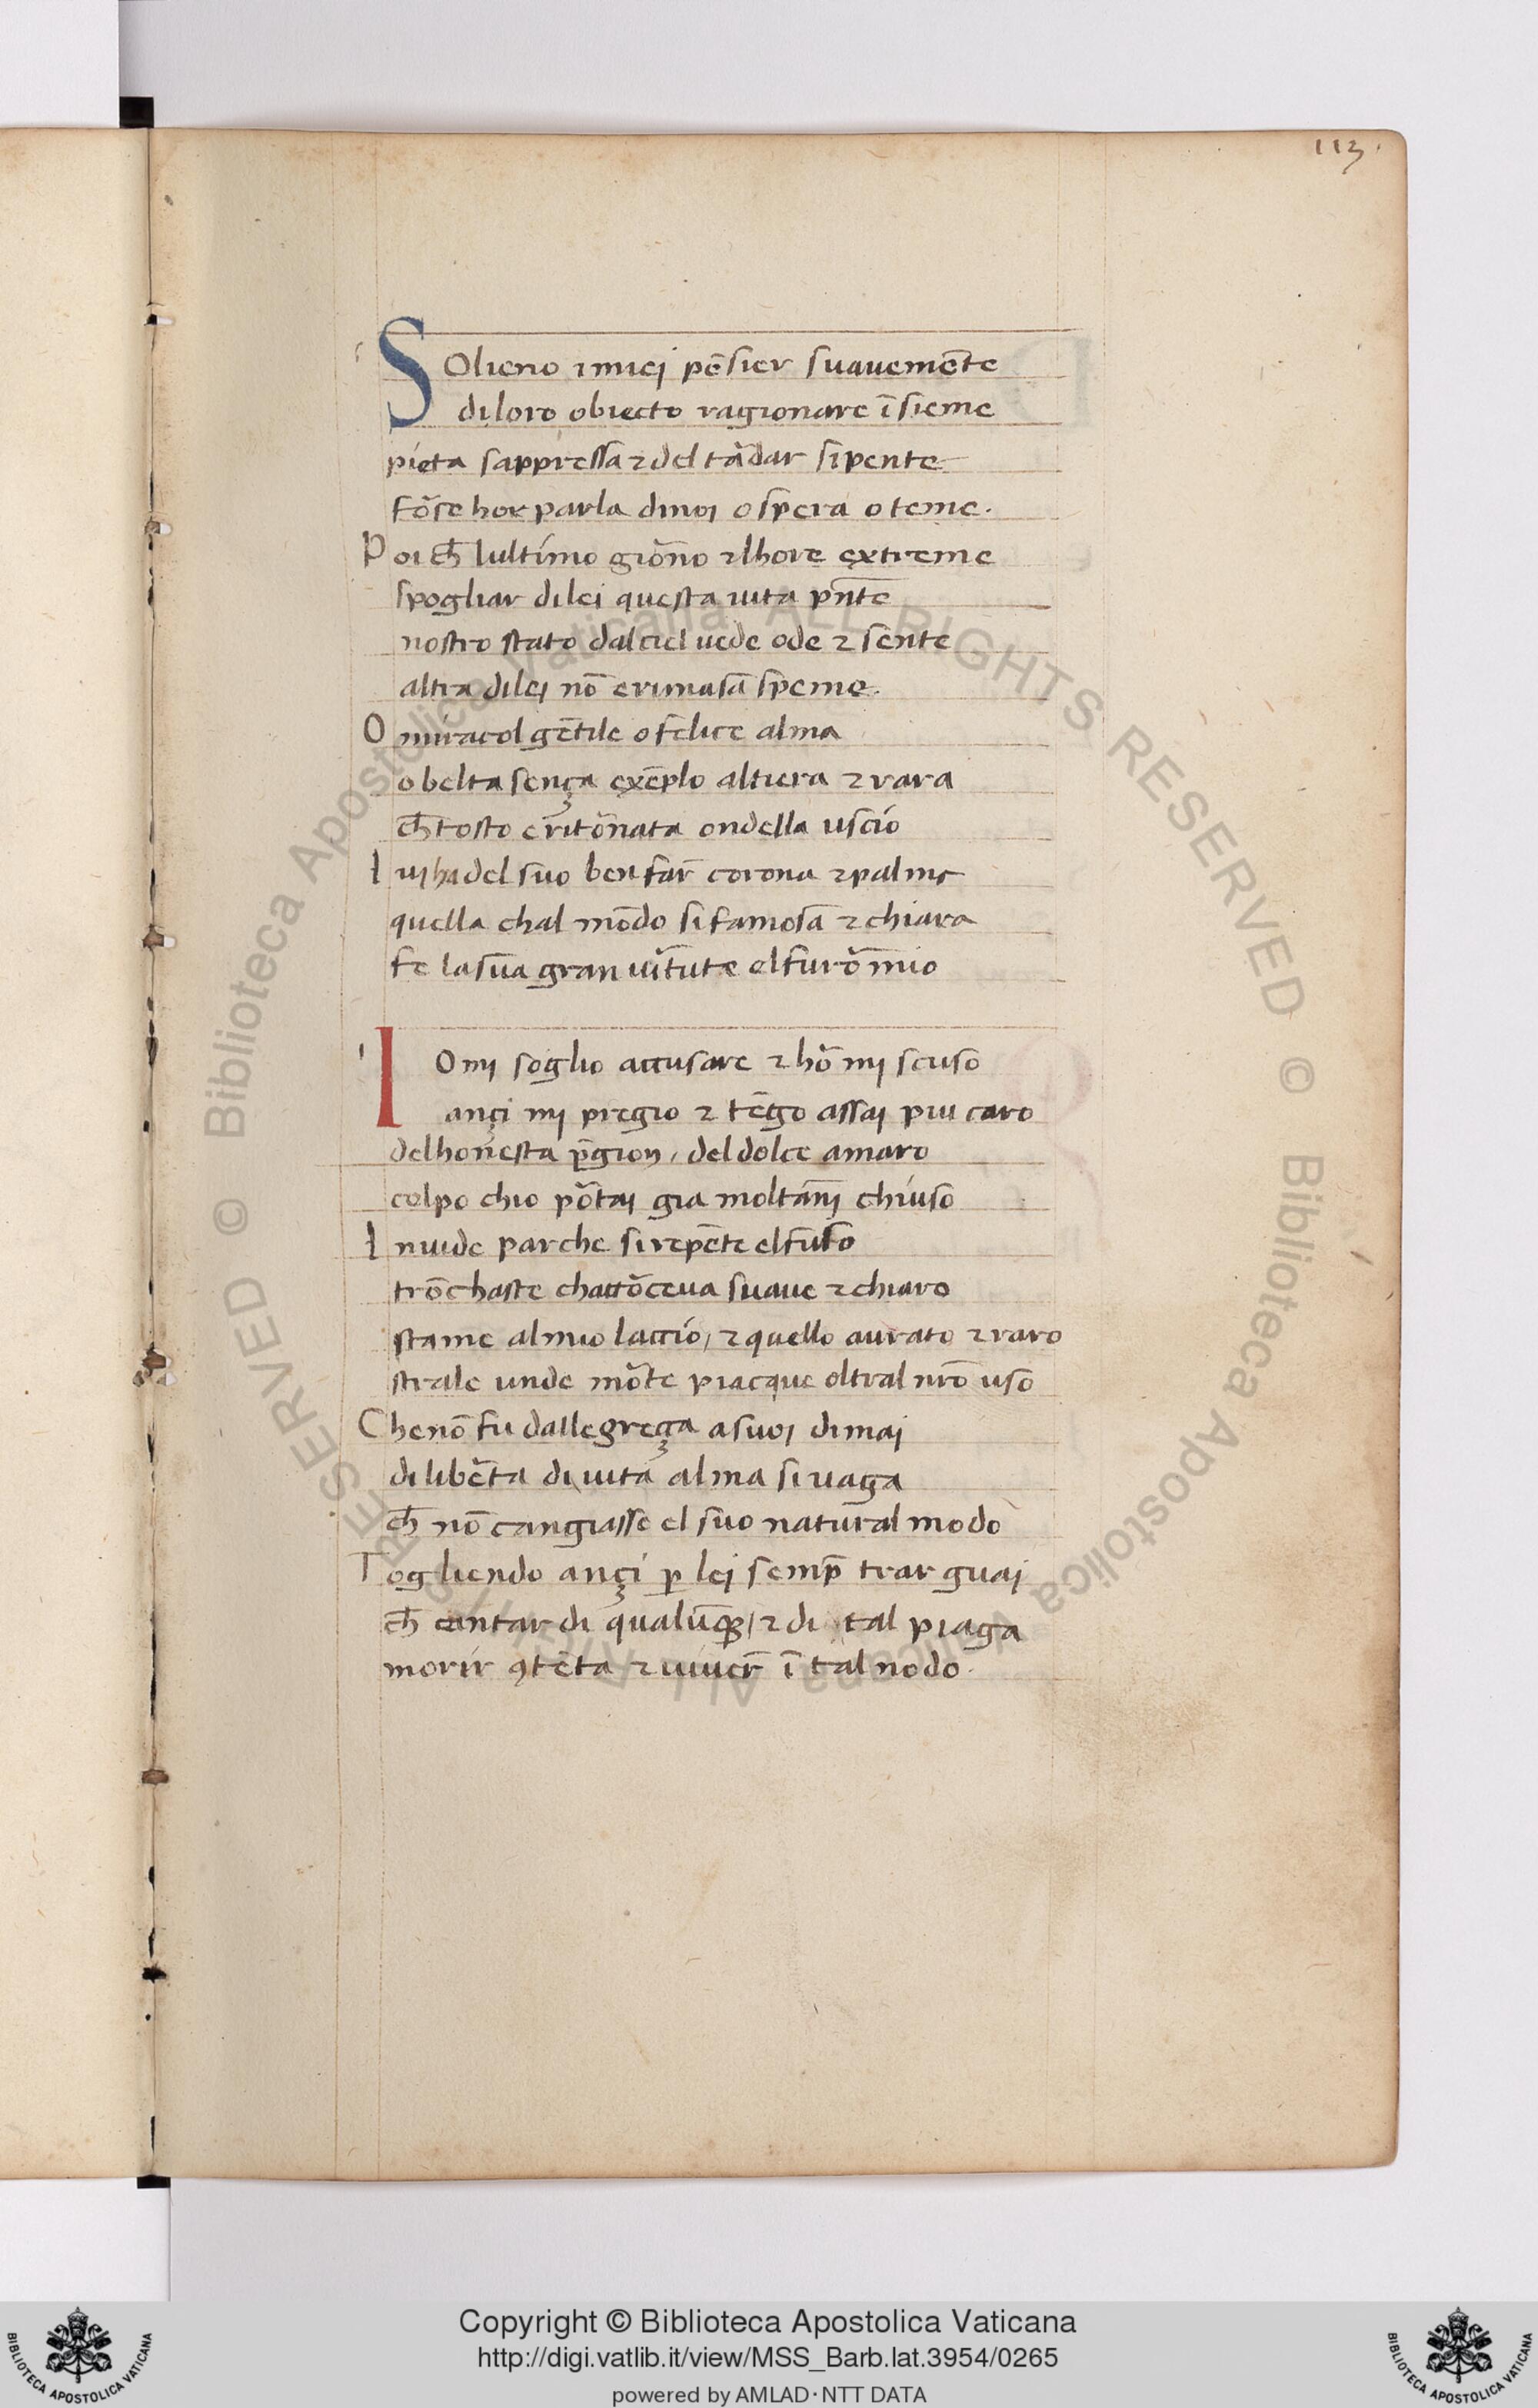 113.
SOlieno i miei pēsier suauemēte
di loro obiecto ragionare īsieme
pieta sappressa ⁊ del tādar si pente
fōse hor parla di noi o spera o teme.
Poi ch̄ lultimo giōno ⁊ lhore extreme
spogliar di lei questa uita pn̄te
nostro stato dal ciel uede ode ⁊ sente
altra di lei nō e rimasa speme.
O miracol gētile o felice alma
o belta sença exēplo altiera ⁊ rara
ch̄ tosto e ritōnata ondella uscio
Iui ha del suo ben far̄ corona ⁊ palma
quella chal mōdo si famosa ⁊ chiara
fe la sua gran uītute el furō mio
IO mi soglio accusare ⁊ hō mi scuso
ançi mi pregio ⁊ tēgo assai piu caro
del honesta p̄gion, del dolce amaro
colpo chio pōtai gia moltāni chiuso
Inuide parche si repēte el fuso
trōchaste chattōceua suaue ⁊ chiaro
stame al mio laccio, ⁊ quello aurato ⁊ raro
strale unde mōte piacque oltral nr̄o uso
Che nō fu dallegreça a suoi di mai
di libēta di uita alma si uaga
ch̄ nō cangiasse el suo natural modo
Togliendo ançi ꝑ lei semp̄ trar guai
ch̄ cantar di qualūqꝫ, ⁊ di tal piaga
morir ꝯtēta ⁊ uiuer̄ ī tal nodo.
© Biblioteca Apostolica Vaticana ALL RIGHTS RESERVED
© Biblioteca Apostolica Vaticana ALL RIGHTS RESERVED
Copyright © Biblioteca Apostolica Vaticana
http://digi.vatlib.it/view/MSS_Barb.lat.3954/0265
powered by AMLAD·NTT DATA
BIBLIOTECA APOSTOLICA VATICANA
BIBLIOTECA APOSTOLICA VATICANA